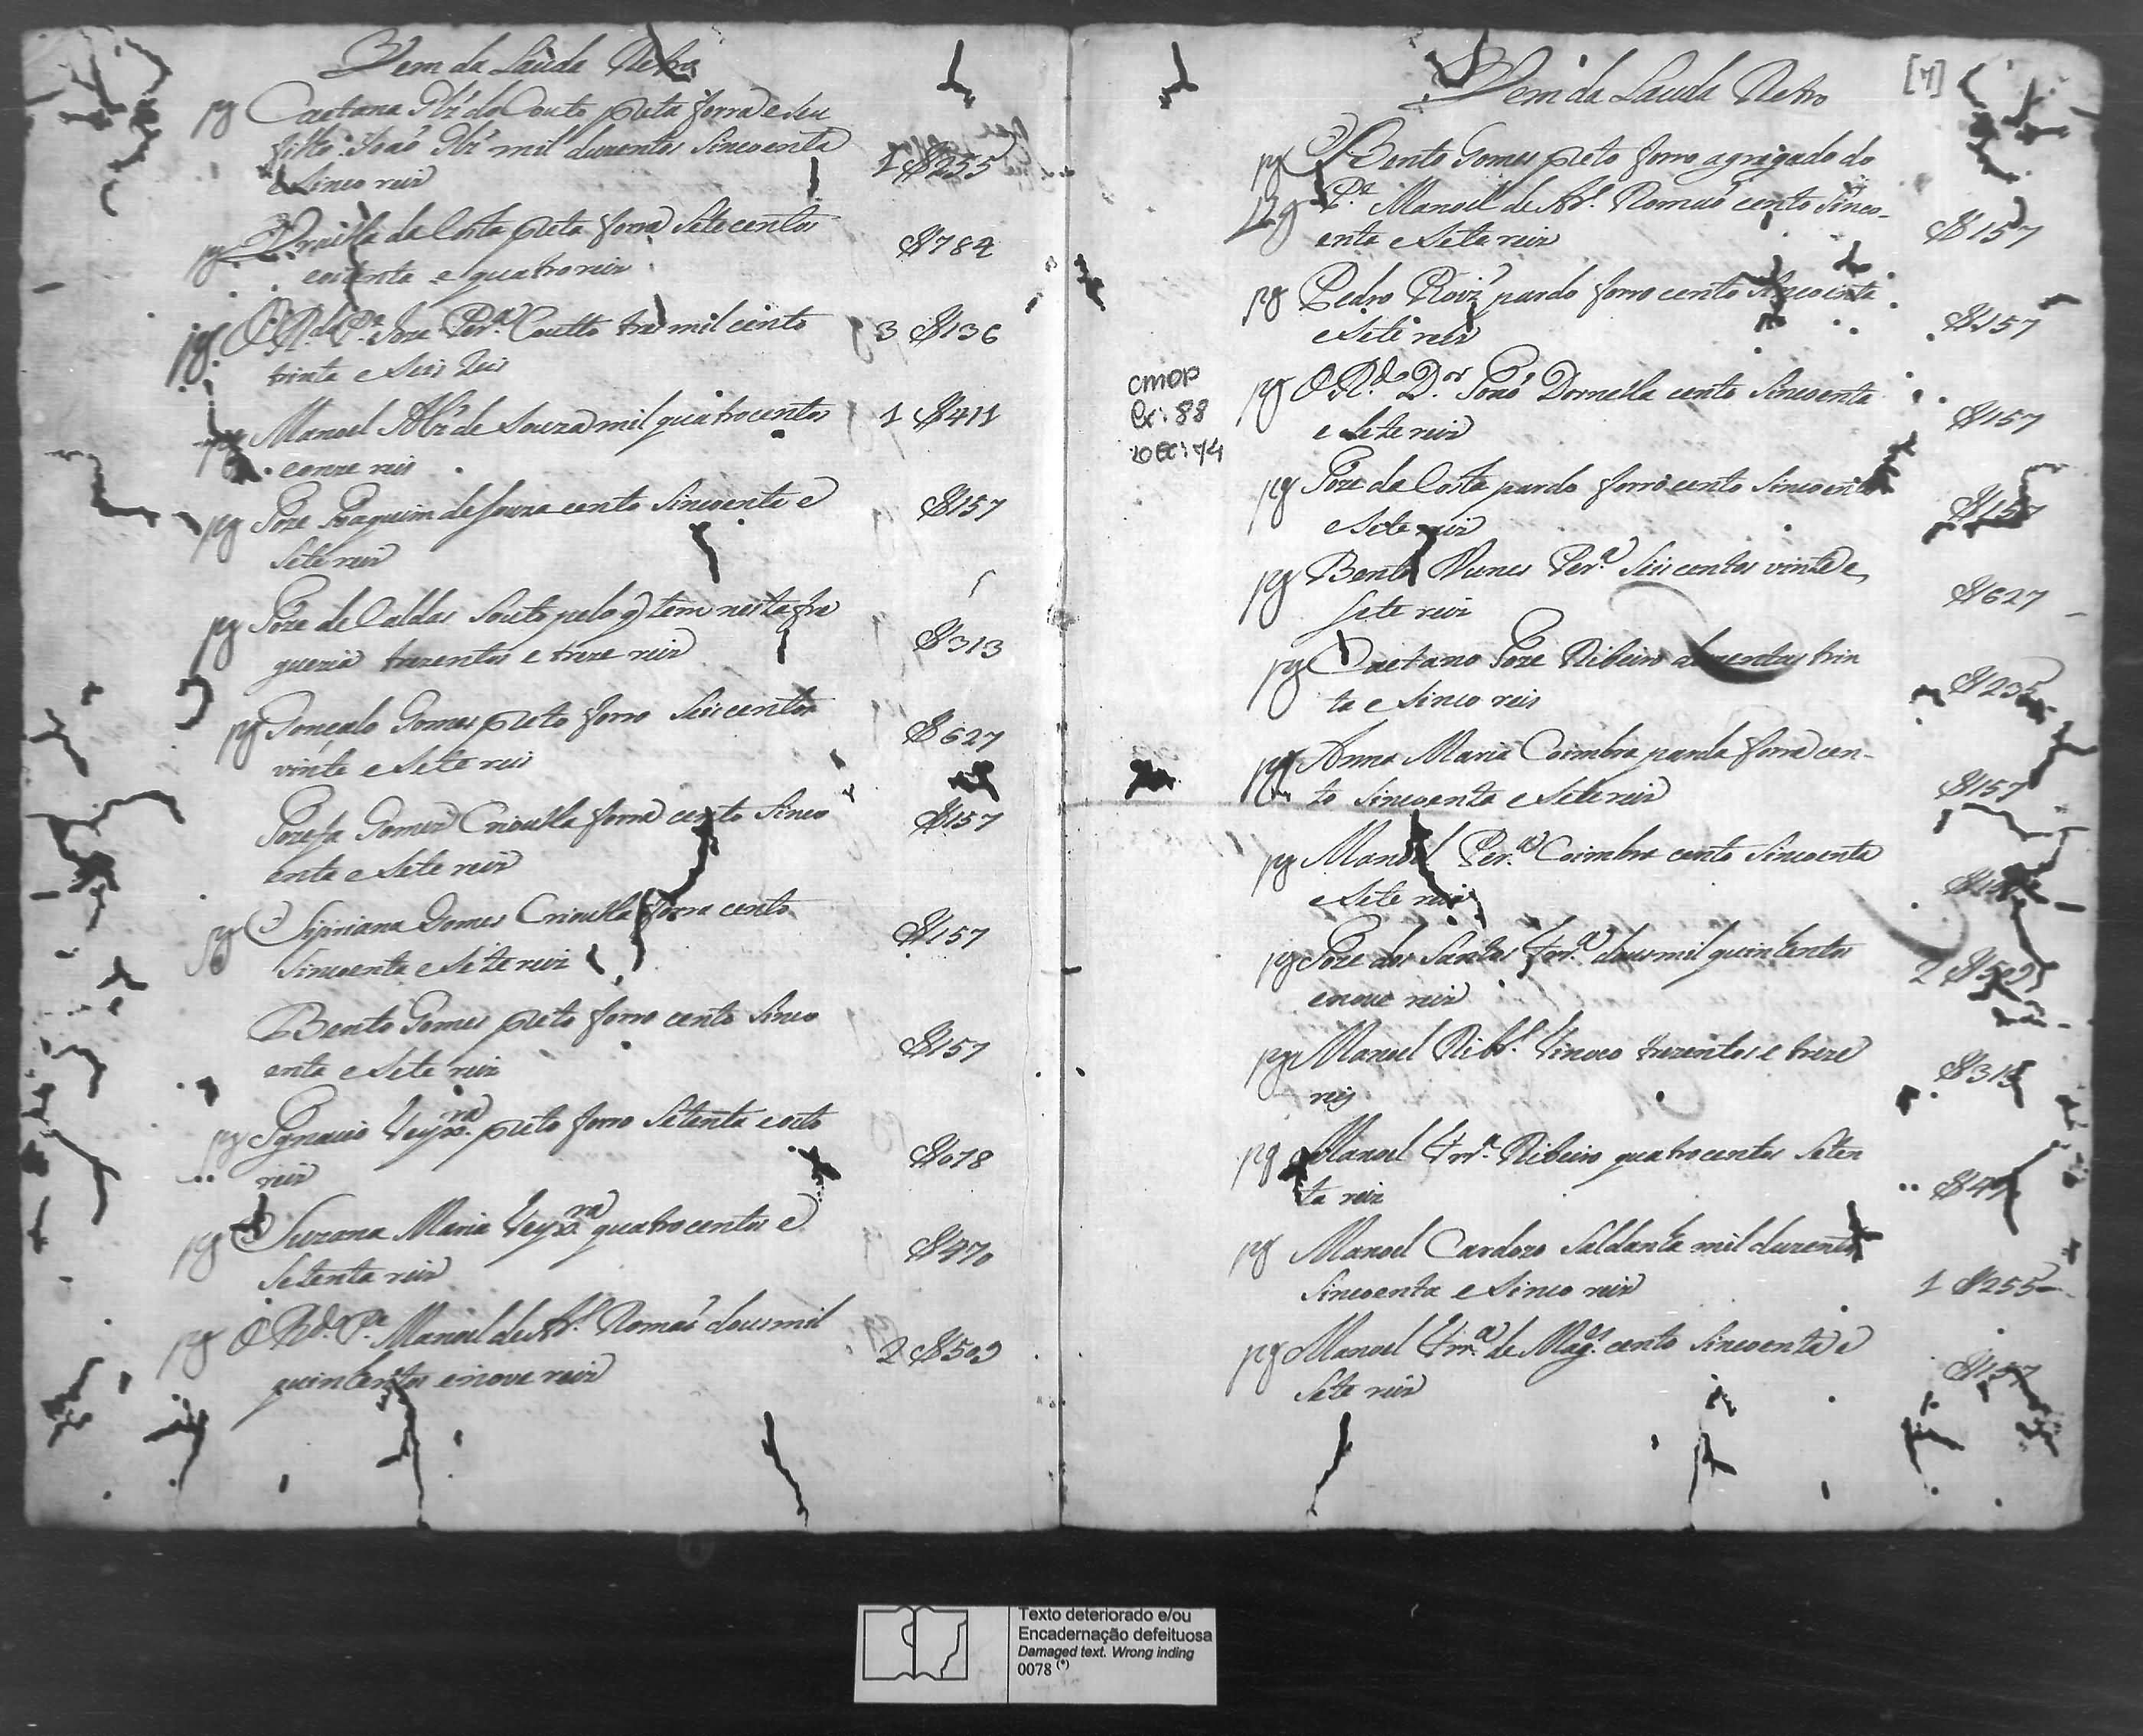 Vem da Lauda Retro
pg Caetana Glz' do Couto preta forra e seu
filho João Glz' mil duzentos sincoenta
e sinco reis 1 $255
pg da Costa preta forra sete centos
outenta e quatro reis $784
pg O R.do P.e Joze Per.a Coutto tres mil cento
trinta e seis reis 3 $136
pg Manoel Alz' de Souza mil quatrocentos
e onze reis 1 $411
pg Joze Joaquim de Souza cento sincoenta e
sete reis $157
pg Joze de Caldas Souto pelo q tem nesta fre
guezia trezentos e treze reis $313
pg Goncalo Gomes preto forro seis centos
vinte e sete reis $627
Jozefa Gomes Crioulla forra cento sinco
enta e sete reis $157
pg Sipriana Gomes Crioulla forra cento
sincoenta e sete reis $157
Bento Gomes preto forro cento sinco
enta e sete reis $157
pg Ignacio Teyx.ra preto forro setenta e oito
reis $078
pg Suzana Maria Teyx.ra quatrocentos e
setenta reis $470
pg O R.do P.e Manoel de Ab.r Romaõ dous mil
quinhentos e nove reis 2 $509
[7]
Vem da Lauda Retro
pg Bento Gomes preto forro agregado do
pg P.e Manoel de Ab.r Romaõ cento sinco-
enta e sete reis $157
pg Pedro Roiz' pardo forro cento sincoenta
e sete reis $157
CMOP
Cx: 88
DOC: 74
pg O R.do D.or João Dornella cento sincoenta
e sete reis $157
pg Joze da Costa pardo forro cento sincoenta
e sete reis $157
pg Bento Nunes Per.a seis centos vinte e
sete reis $627
pg Caetano Joze Ribeiro duzentos trin
ta e sinco reis $235
pg Anna Maria Coimbra parda forra cen-
to sincoenta e sete reis $157
pg Manoel Per.a Coimbra cento sincoenta
e sete reis
pg Joze dos Santos Frr.a dous mil quinhentos
e nove reis 2 $509
pg Manoel Rib.r trezentos e treze
reis $313
pg Manoel Frr.a Ribeiro quatrocentos seten
ta reis $47
pg Manoel Cardozo Saldanha mil duzentos
sincoenta e sinco reis 1 $255
pg Manoel Frr.a de Mag.es cento sincoenta e
sete reis $157
Texto deteriorado e/ou
Encadernação defeituosa
Damaged text. Wrong inding
0078 (*)